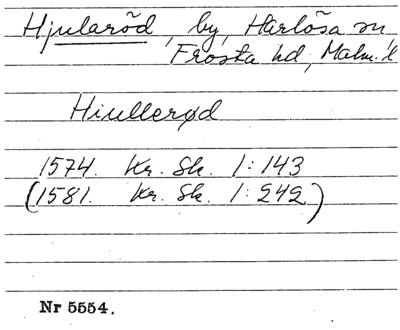 Hjularöd, by, Harlösa sn
Frosta hd, Malm. l
Hiullerød
1574. Kr. Sk. 1:143
(1581. Kr. Sk. 1:242)
Nr 5554.